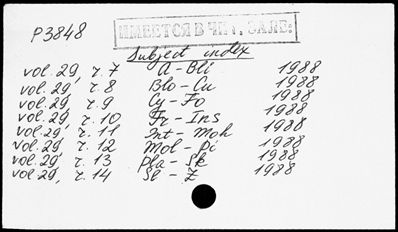 P3848
ИМЕЕТСЯ В ЧИТ. ЗАЛЕ:
Subject index
vol. 29, г. 7 A - Bli 1988
vol. 29, г. 8 Blo - Cu 1988
vol. 29, г. 9 Cy - Fo 1988
vol. 29, г. 10 Fr - Ins 1988
vol. 29, г. 11 Int - Moh 1988
vol. 29, г. 12 Mol - Pi 1988
vol. 29, г. 13 Pla - Sk 1988
vol. 29, г. 14 Sl - Z 1988